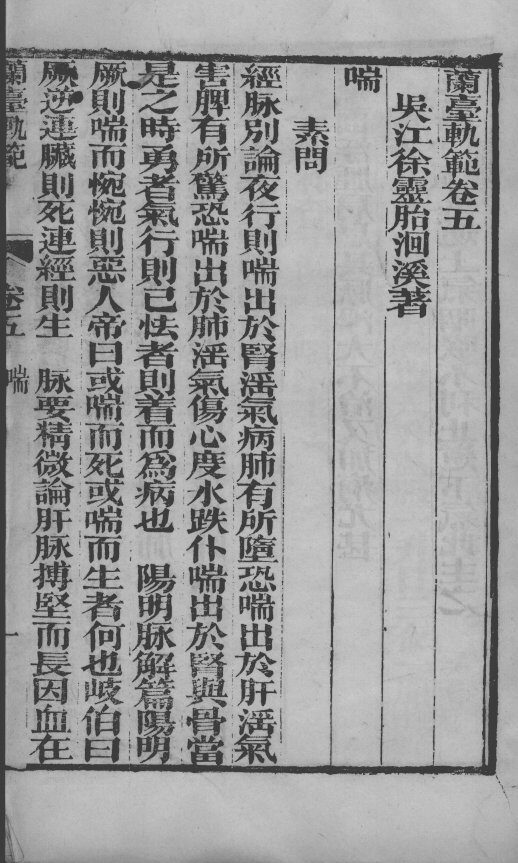 蘭臺軌範卷五
吳江徐靈胎洄溪著
喘
素問
經脉別論夜行則喘出於腎淫氣病肺有所墮恐喘出於肝淫氣
害脾有所驚恐喘出於肺淫氣傷心度水跌仆喘出於腎與骨當
是之時勇者氣行則已怯者則着而爲病也　陽明脉解篇陽明
厥則喘而惋惋則惡人帝曰或喘而死或喘而生者何也岐伯曰
厥逆連臟則死連經則生　脉要精微論肝脉搏堅而長因血在
蘭臺軌範　卷五　喘　一